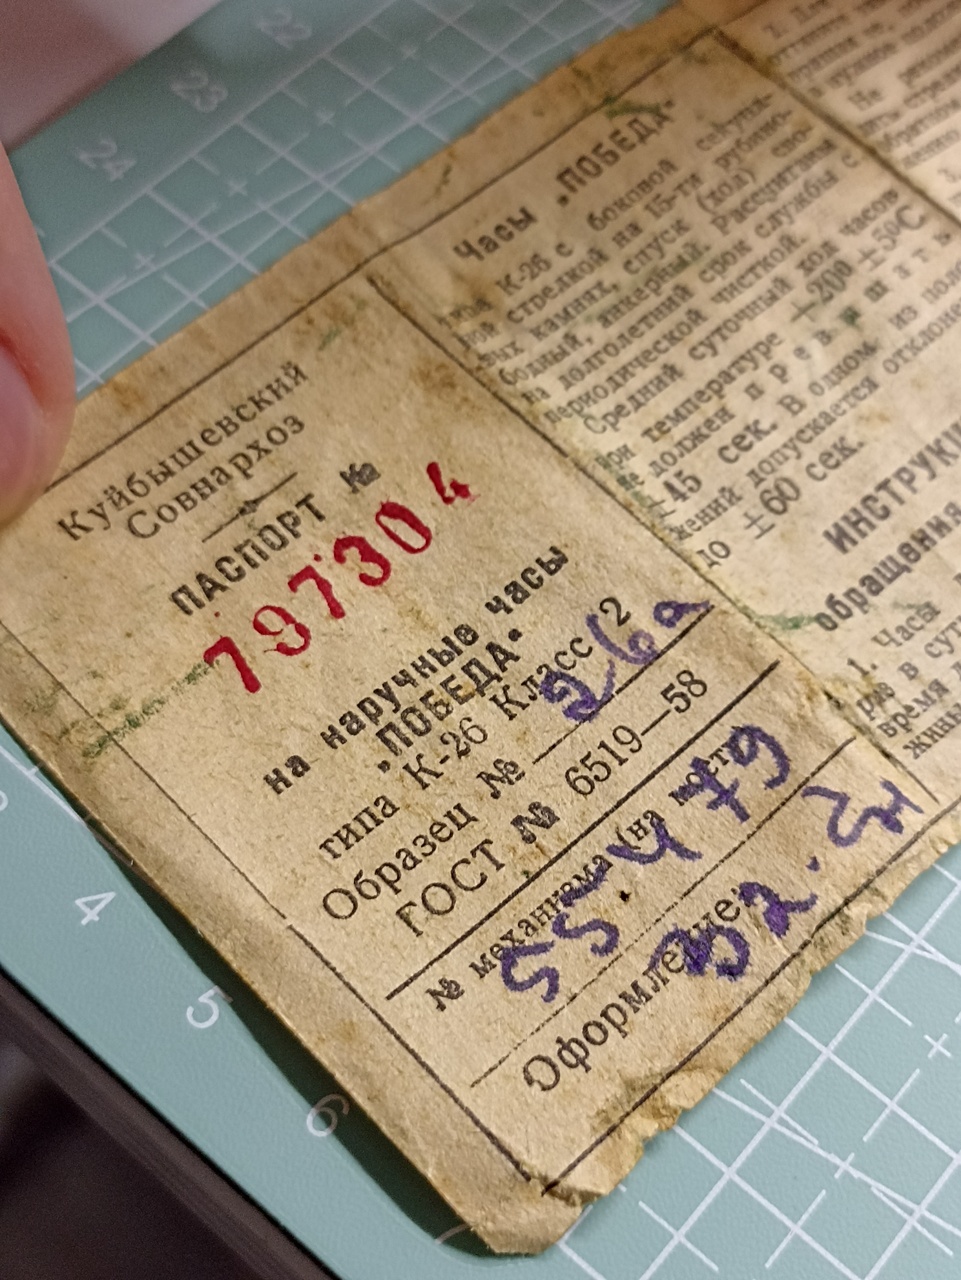 Куйбышевский
Совнархоз
ПАСПОРТ №
797304
на наручные часы
„ПОБЕДА"
типа К-26 Класс 2
Образец № 26а
ГОСТ № 6519—58
№ механизма (на мосту)
55479
Оформление
32.2н
Часы „ПОБЕДА"
К-26 с боковой
стрелкой на 15-ти рубино-
вых камнях, спуск (ход) сво-
бодный, анкерный. Рассчитан
на долголетний срок службы с
периодической чисткой.
Средний суточный ход часов
при температуре +20° ±5°С
не должен превышать
±45 сек. В одном из
жений допускается
до ±60 сек.
ИНСТРУКЦ
обращения
1. Часы
раз в сут
время
22
23
24
4
5
6